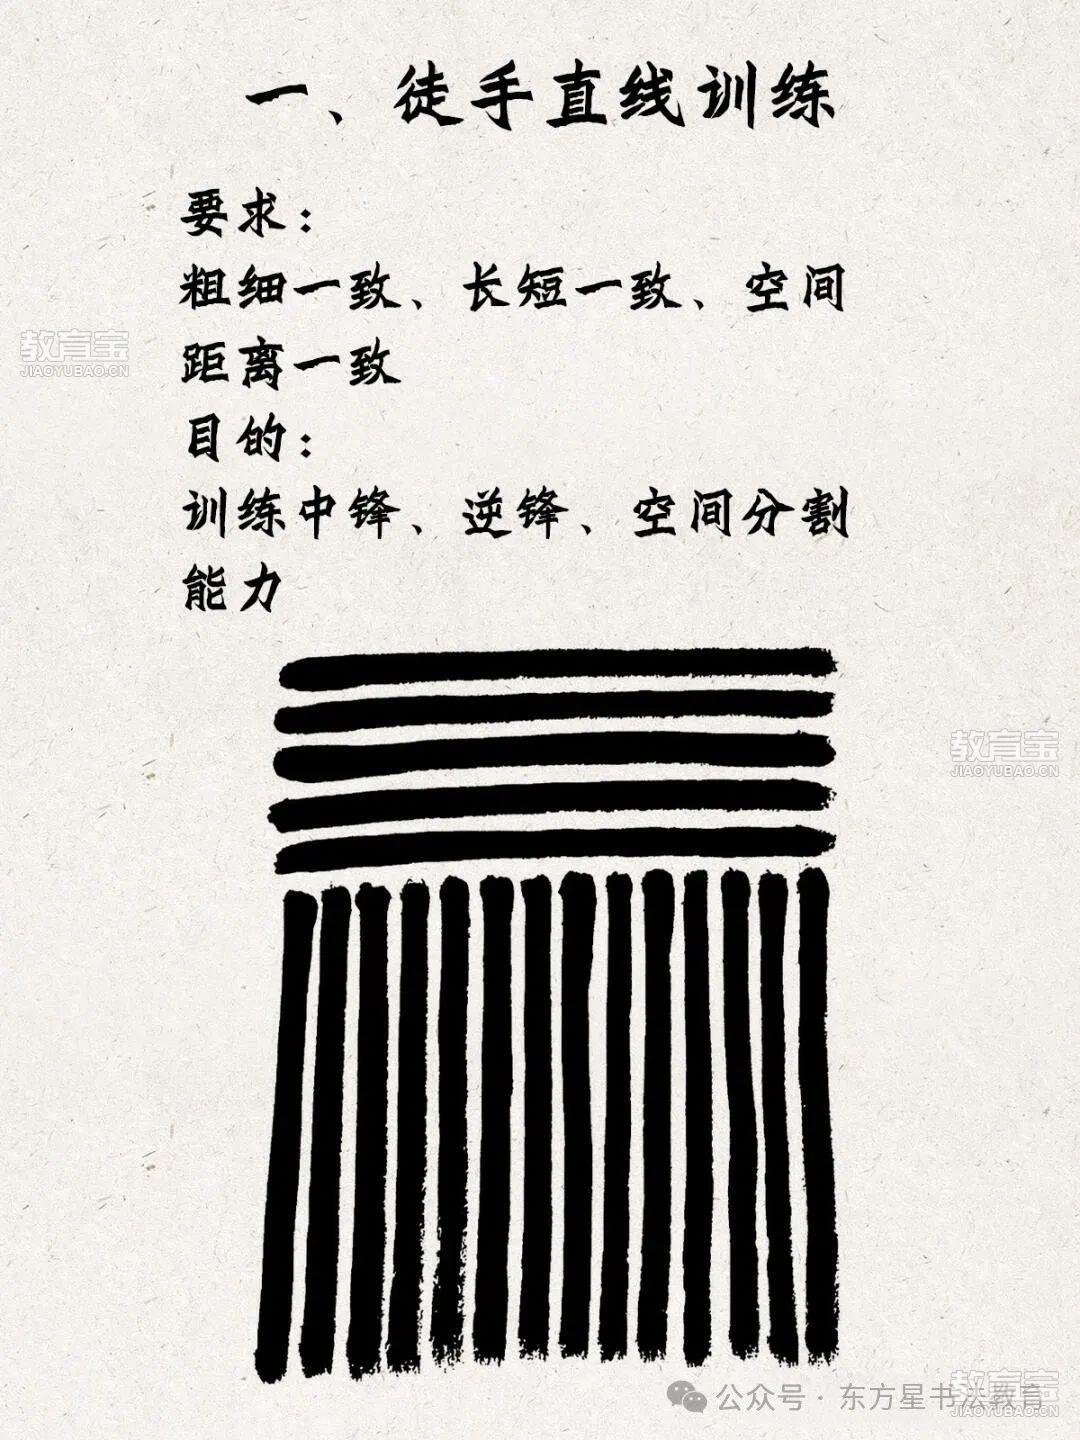 一、徒手直线训练
要求：
粗细一致、长短一致、空间
距离一致
教育宝
JIAOYUBAO.CN
目的：
训练中锋、逆锋、空间分割
能力
教育宝
JIAOYUBAO.CN
公众号 · 东方星书法教育
教育宝
JIAOYUBAO.CN